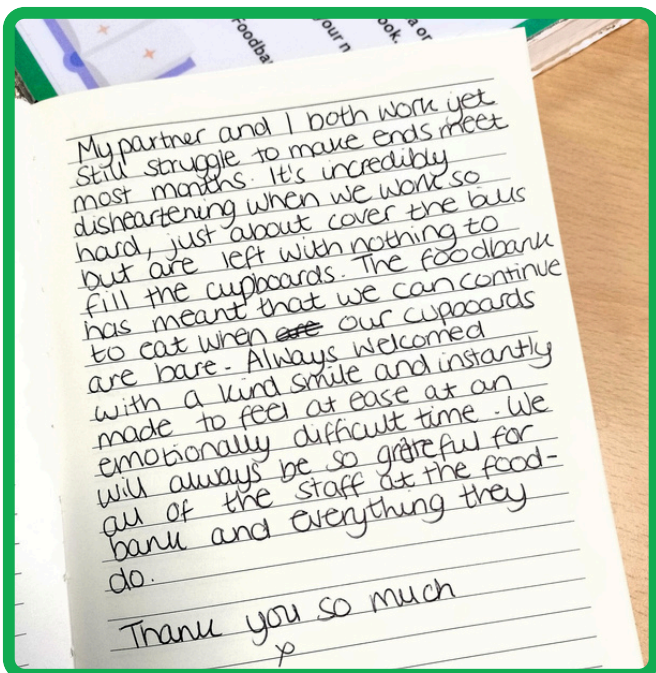 Foodba
your n
ook.
a or
My partner and I both work yet
still struggle to make ends meet
most months. It's incredibly
disheartening when we work so
hard, just about cover the bills
but are left with nothing to
fill the cupboards. The foodbank
has meant that we can continue
to eat when are our cupboards
are bare. Always welcomed
with a kind smile and instantly
made to feel at ease at an
emotionally difficult time. We
will always be so grateful for
all of the staff at the food-
bank and everything they
do.
Thank you so much
x